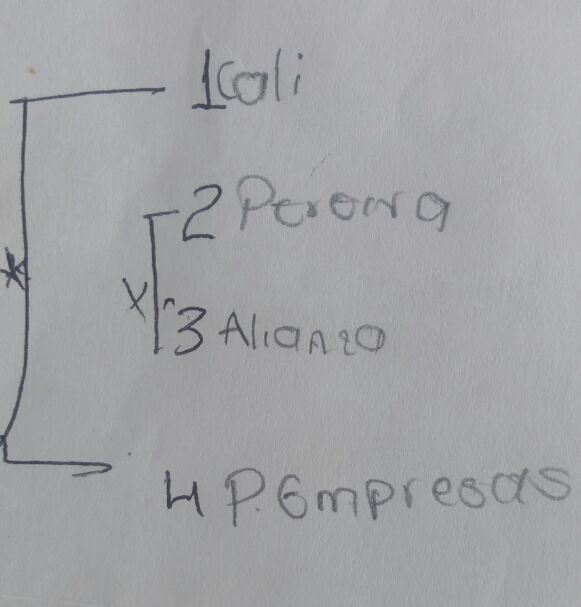 1 Cali
2 Pereira
3 Alianzo
4 P. Empresas